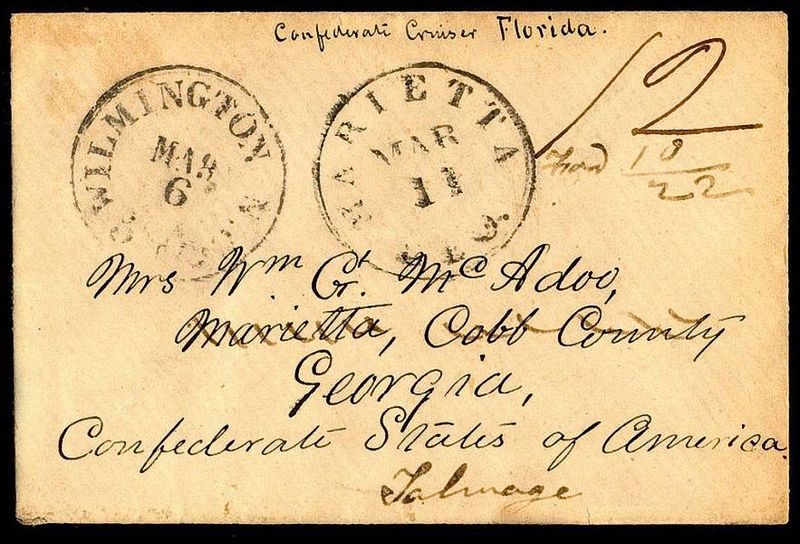 Confederate Cruiser Florida.
WILMINGTON N.
MAR
6
MARIETTA
MAR
11
GEO.
12
10
22
Mrs Wm G. McAdoo,
Marietta, Cobb County
Georgia,
Confederate States of America.
Talmage